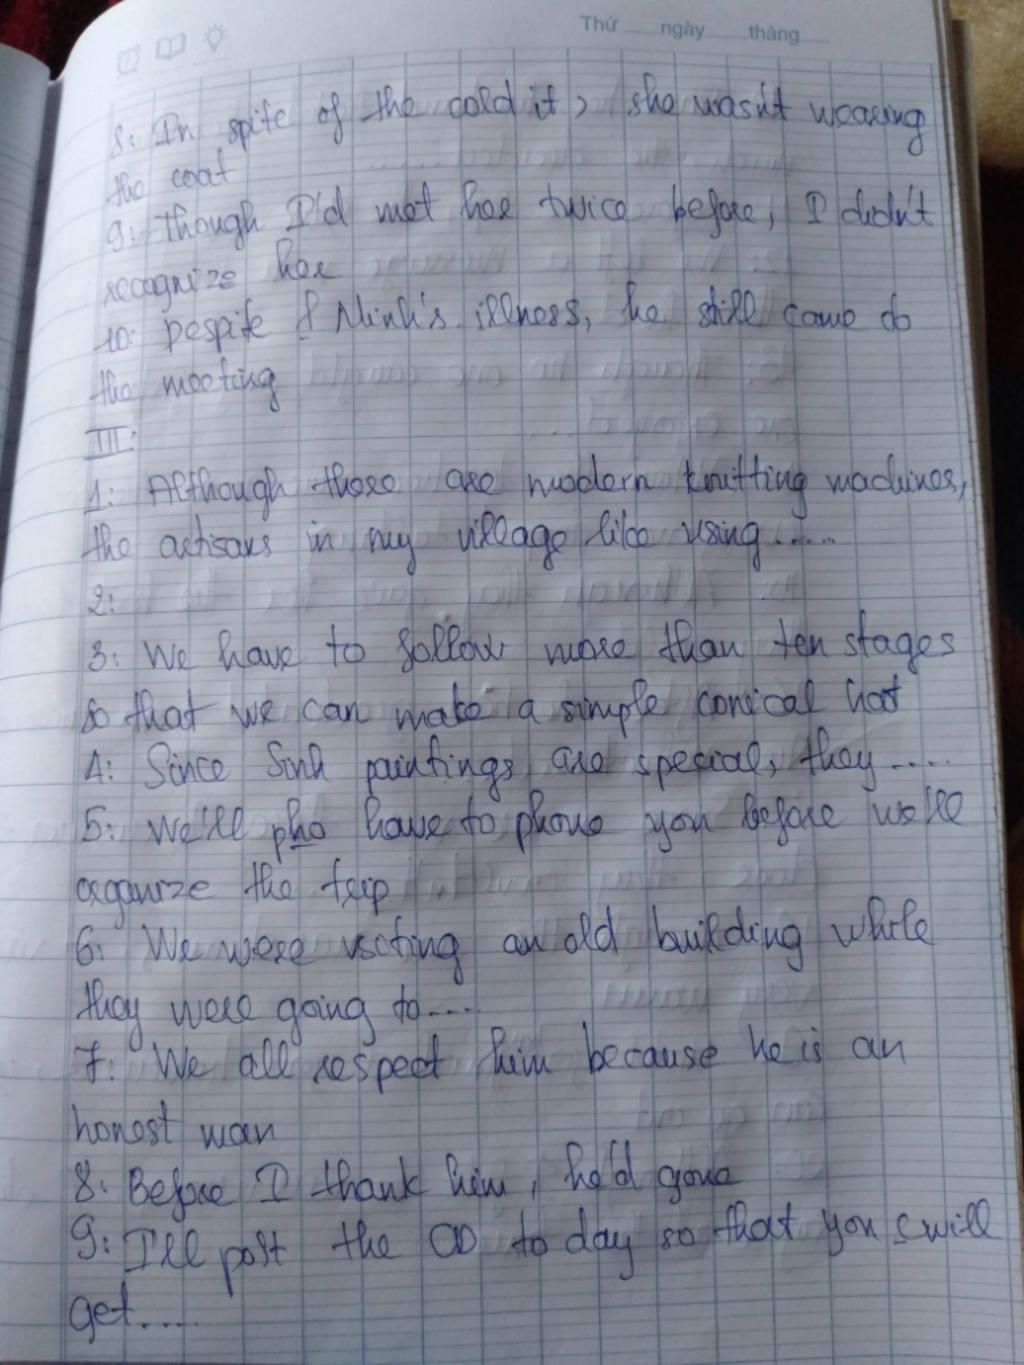 Thứ ngày tháng
8: In spite of the cold it, she wasn't wearing
the coat
9: though I'd met her twice before, I didn't
recognize her
10: Despite of Minh's illness, he still came to
the meeting
III:
1: Although there are modern knitting machines,
the artisans in my village like using.....
2:
3: We have to follow more than ten stages
so that we can make a simple conical hat
4: Since Sinh paintings are special, they.....
5: We'll pho have to phone you before we'll
organize the trip
6: We were visiting an old building while
they were going to....
7: We all respect him because he is an
honest man
8: Before I thank him, he'd gone
9: I'll post the CD to day so that you will
get....